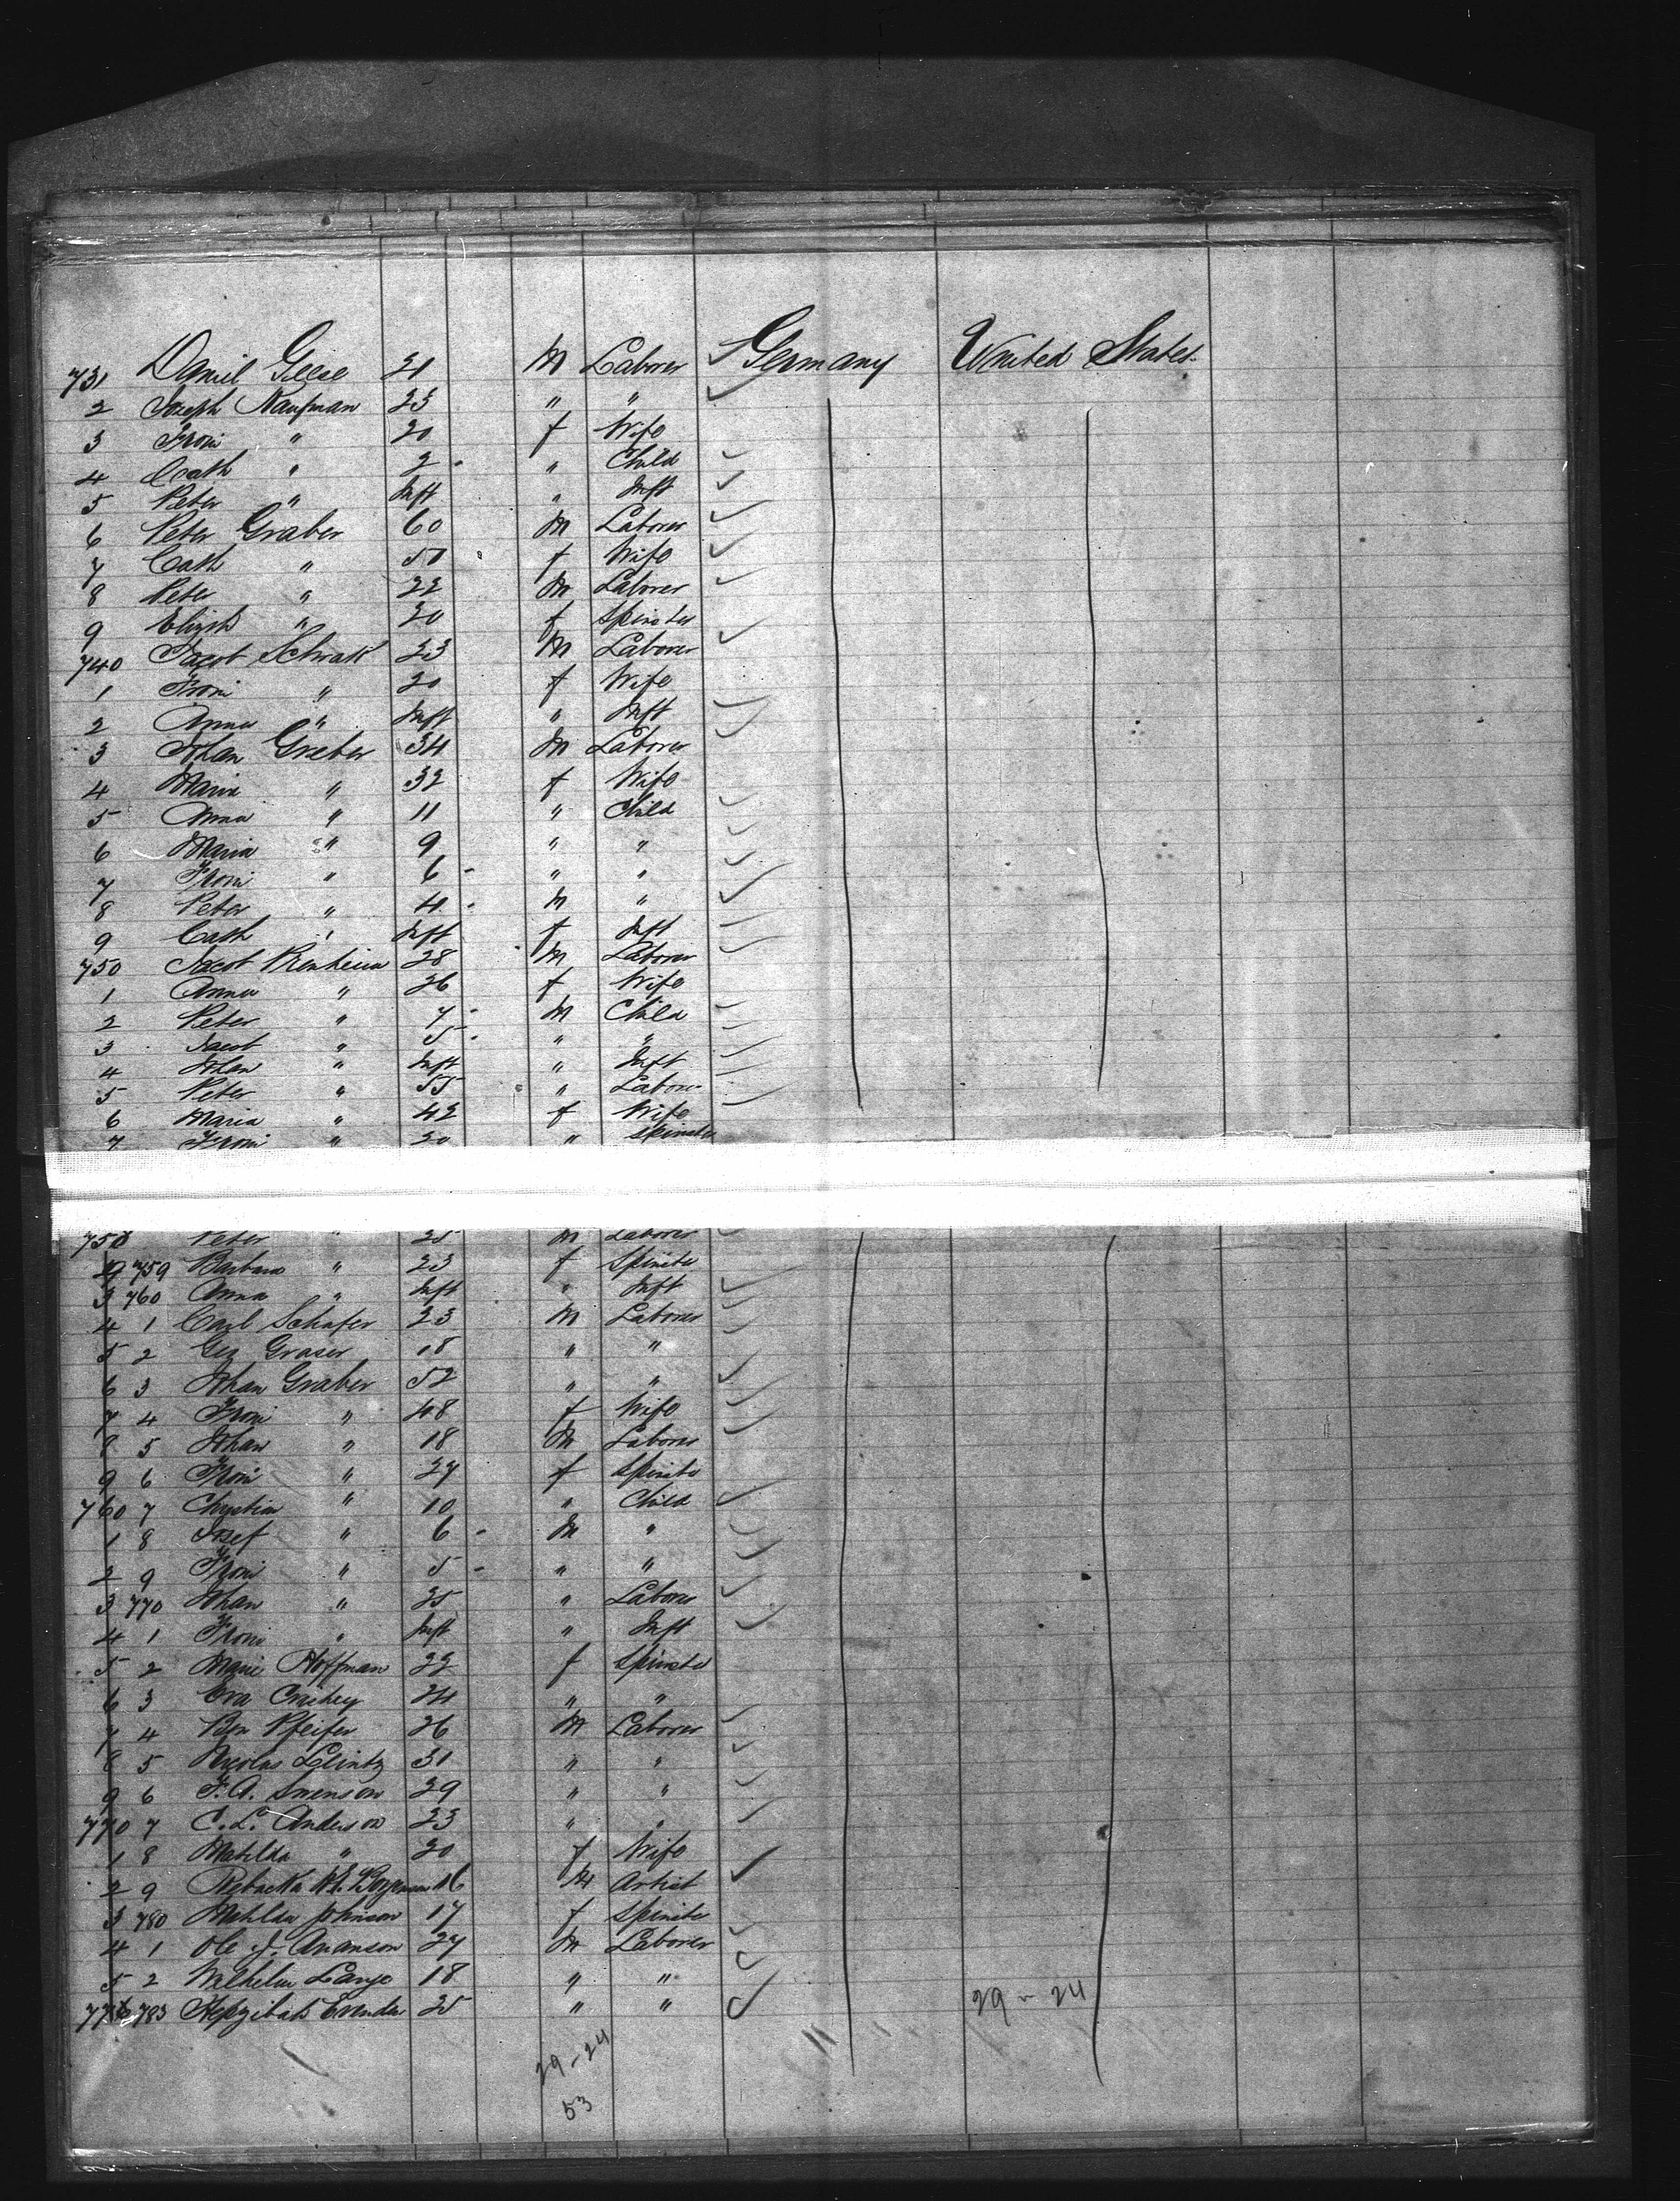 731 Daniel 21 M Laborer Germany United States
2 Joseph Kaufman 23 " "
3 Froni " 20 f Wife
4 Cath " 2 " Child
5 Peter " Inft " Inft
6 Peter Graber 60 M Laborer
7 Cath " f Wife
8 Peter " 22 M Laborer
9 Elizth " 20 f Spinster
740 Jacob Schrak 23 M Laborer
1 Froni " 20 f Wife
2 Anna " Inft " Inft
3 Johan Graber 34 M Laborer
4 Maria " 32 f Wife
5 Anna " 11 " Child
6 Maria " 9 " "
7 Froni " 6 " "
8 Peter " 4 M "
9 Cath " Inft f Inft
750 Jacob 28 M Laborer
1 Anna " 26 f Wife
2 Peter " 7 M Child
3 Jacob " 5 " "
4 Johan " Inft " Inft
5 Peter " 55 " Laborer
6 Maria " 42 f Wife
7 Froni " 20 " Spinster
758 Peter " 25 M Laborer
9 759 Barbara " 23 f Spinster
3 760 Anna " Inft " Inft
4 1 Carl Schafer 23 M Laborer
5 2 Geo Graser 18 " "
6 3 Johan Graber 52 " "
7 4 Froni " 48 f Wife
8 5 Johan " 18 M Laborer
9 6 Froni " 27 f Spinster
760 7 Christian " 10 " Child
1 8 Josef " 6 M "
2 9 Froni " 5 " "
3 770 Johan " 25 " Laborer
4 1 Froni " Inft " Inft
5 2 Marie Hoffman 22 f Spinster
6 3 Eva 24 " "
7 4 Ben Pfeifer 26 M Laborer
8 5 Nicolas Leintz 31 " "
9 6 F. A. Swenson 29 " "
770 7 C. L. Anderson 23 " "
1 8 Matilda " 20 f Wife
2 9 16 M Artist
3 780 Mathilda Johnson 17 f Spinster
4 1 Ole J. Ananson 27 M Laborer
5 2 Wilhelm Lange 18 " "
776 783 Hepzibah 25 " " 29 - 24
29 - 24
53